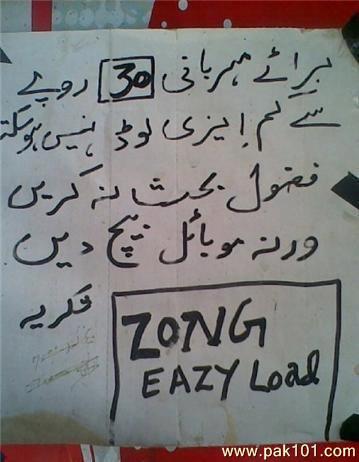 برائے مہربانی 30 روپے
سے کم ایزی لوڈ نہیں ہو سکتا
فضول بحث نہ کریں
ورنہ موبائل بیچ دیں
شکریہ
ZONG
EAZY Load
www.pak101.com